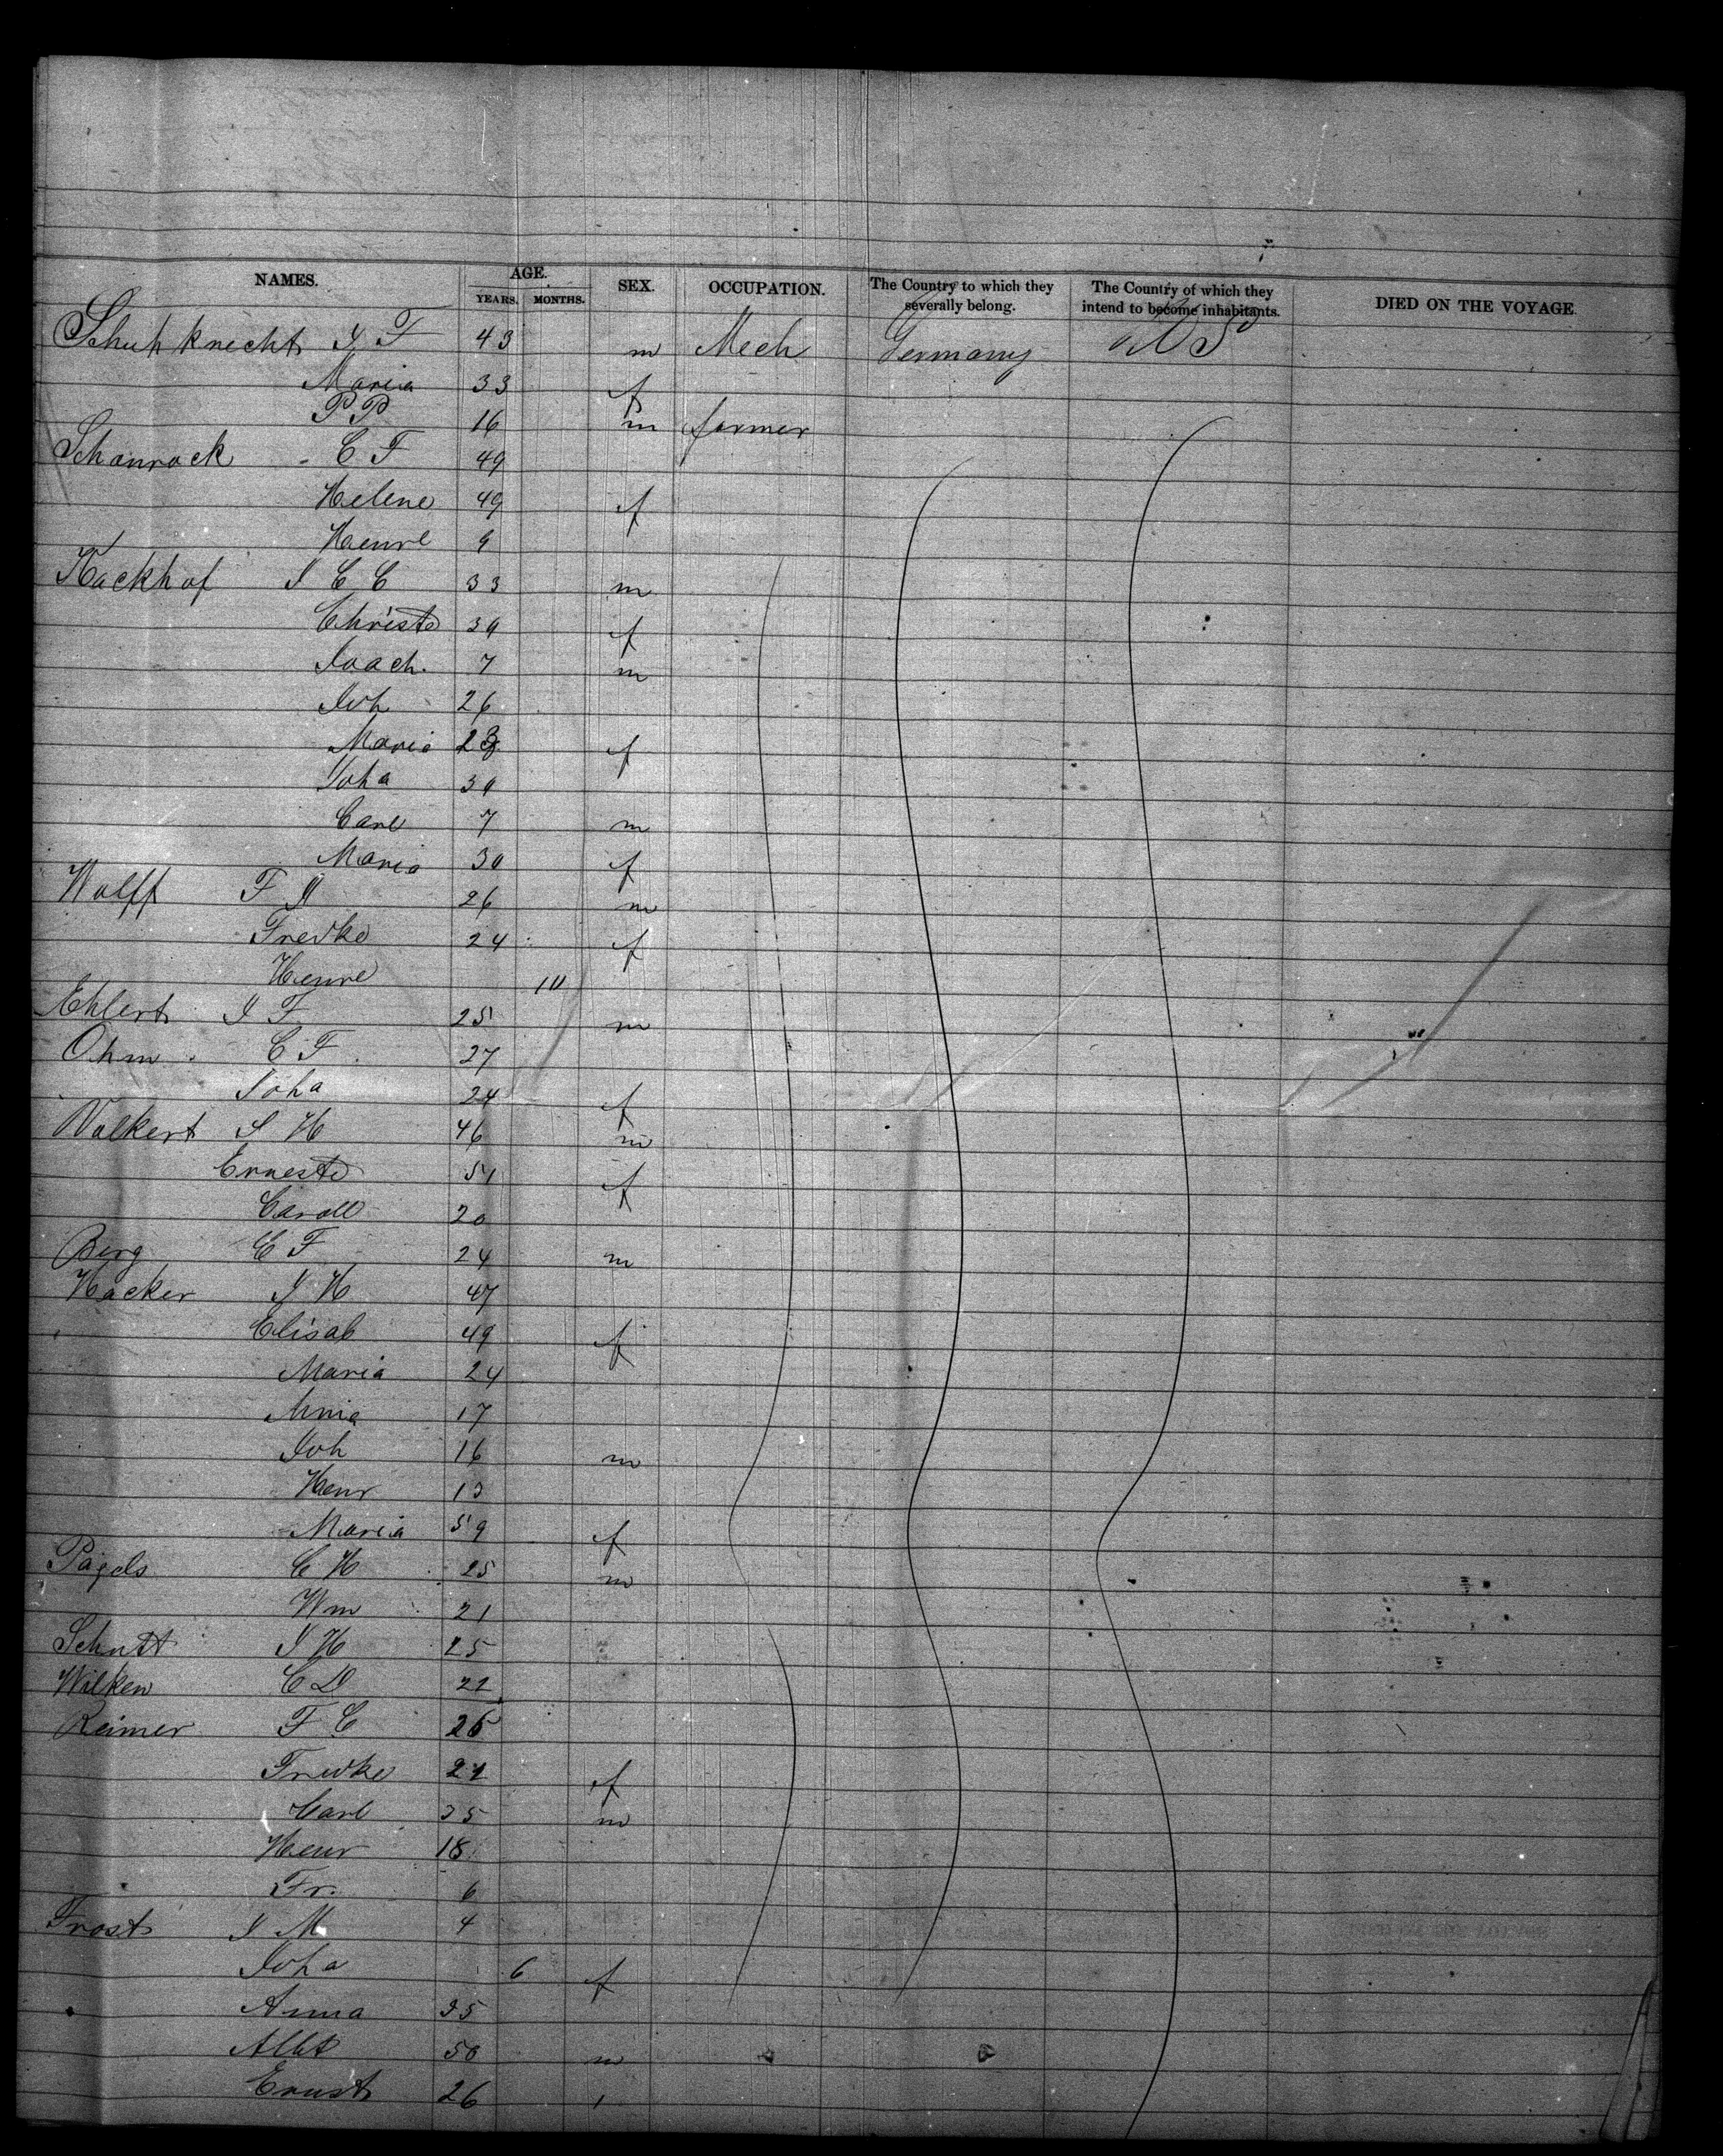 NAMES. AGE. SEX. OCCUPATION. The Country to which they severally belong. The Country of which they intend to become inhabitants. DIED ON THE VOYAGE.
YEARS. MONTHS.
Schuhknecht J F 43 m Mech Germany U S
Maria 33 f
P P 16 m farmer
Schonrock C F 49
Helene 49 f
Henre 9
Kackhof J C C 33 m
Christe 39 f
Joach. 7 m
Joh 26
Maria f
Joha 39
Carl 7 m
Maria 30 f
Wolff F J 26 m
Fredke 24 f
Henre 10
Ehlert J F 25 m
Ohm C F 27
Joha 24 f
Volkert J H 46 m
Erneste 51 f
Caroll 20
Berg C F 24 m
Hacker J H 47
Elisab 49 f
Maria 24
Mnia 17
Joh 16 m
Henr 13
Maria 59 f
Pagels C H 25 m
Wm 21
Schutt J H 25
Wilken C D 22
Reimer F C 26
Fredke f
Carl 35 m
Henr 18
Fr. 6
Frost J M 4
Joha 6 f
Anna 35
Albt 50 m
Ernst 26